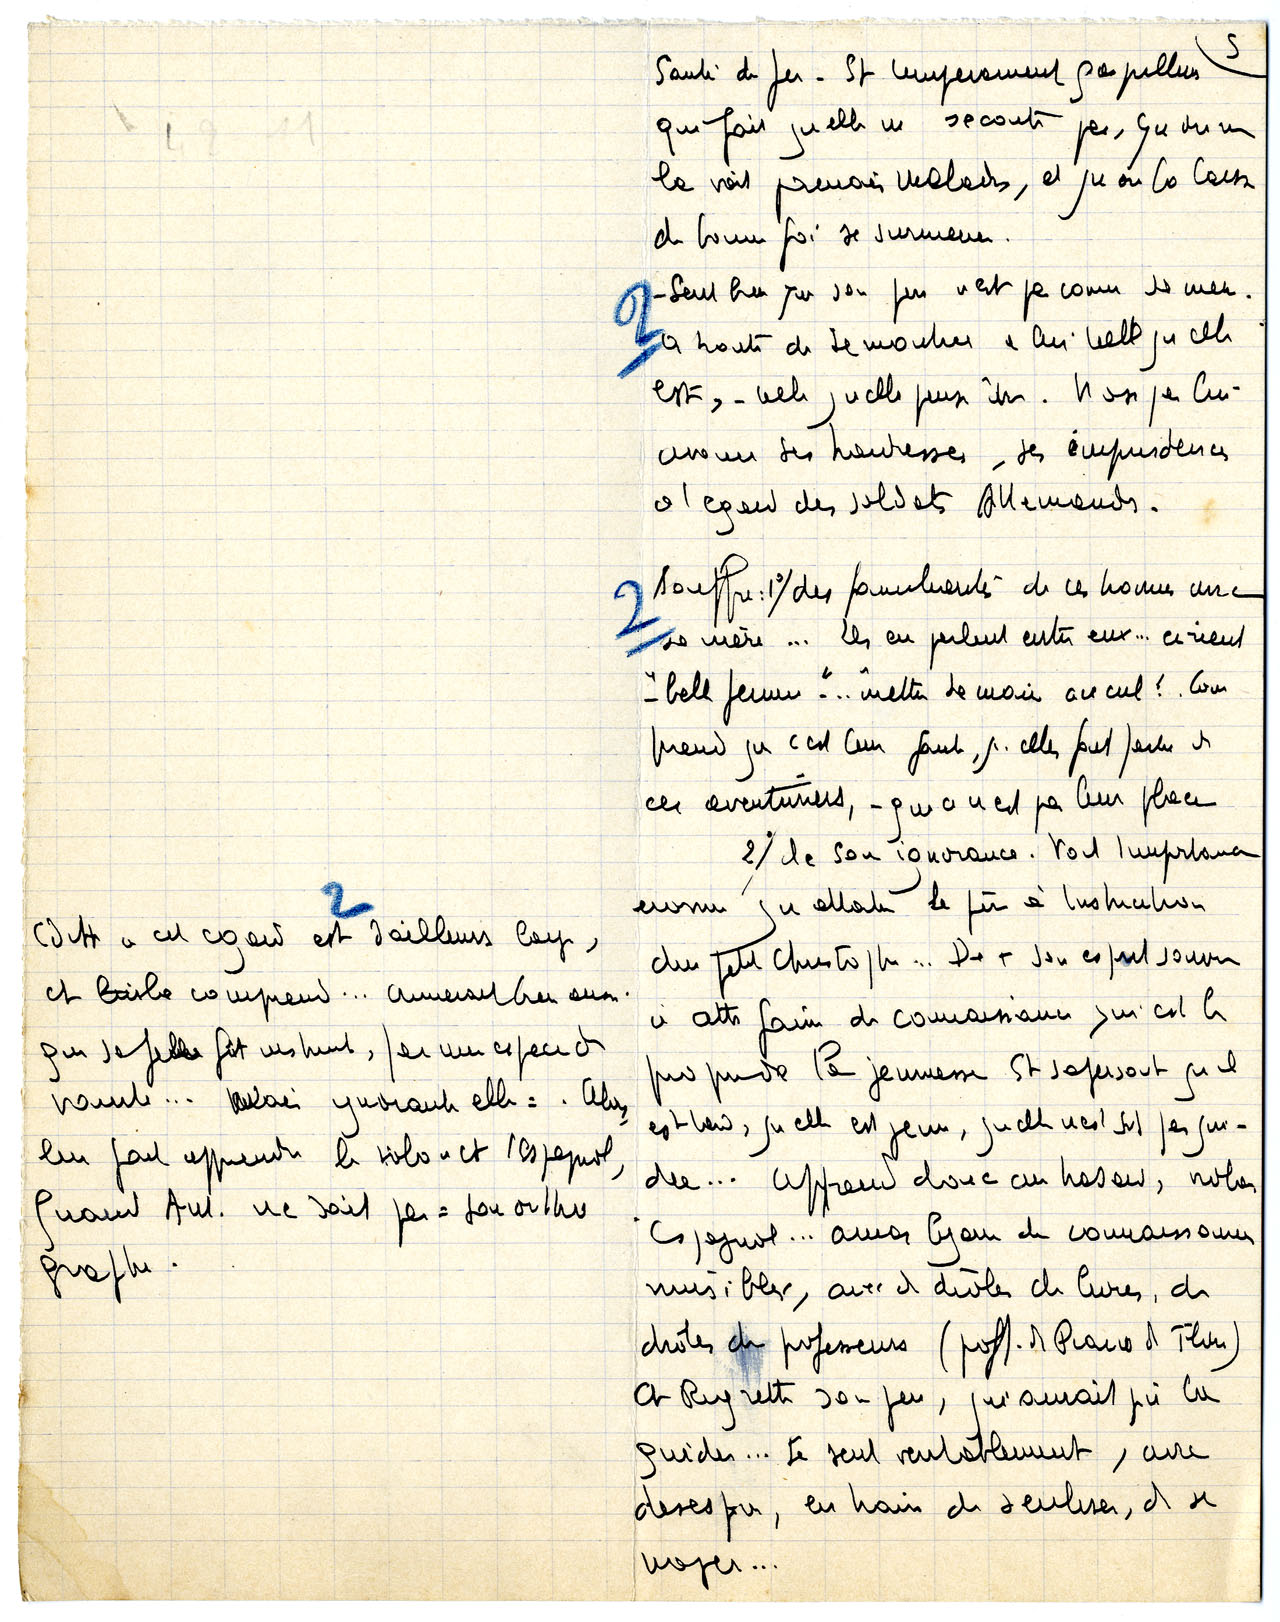 5
Santé de fer - St temperament
qui fait qu elle ne s ecoute pas, qu on ne
la voit jamais malade, et qu on la laisse
de bonne foi se surmener.
2 - Sent bien que son père n est pas comme sa mère.
a honte de se montrer a lui telle qu elle
est, - telle qu elle pense être. N ose pas lui
avouer ses hardiesses, ses imprudences
a l egard des soldats Allemands.
2 Souffre: 1°/ des familiarités de ces hommes avec
sa mère ... Ils en parlent entre eux ...
"belle femme" .. mettre la main au cul! . Com
prend que c est leur faute, si elles font partie d
ces aventuriers, - que ce n est pas leur place
2°/ de son ignorance. Voit l importance
enorme qu attache le père à l instruction
du petit Christophe ... De + son esprit s ouvre
a cette faim de connaissance qui est le
propre de la jeunesse St s apercoit qu il
est tard, qu elle est jeune, qu elle n est pas gui-
dée ... Apprend donc au hasard,
Espagnol ... amas de connaissances
nuisibles, avec d drôles de livres, de
drôles de professeurs (prof. d Piano d)
et Regrette son père, qui aurait pu la
guider ... Se sent veritablement, avec
desespoir, en train de s enliser, d se
noyer ...
2
Odette a cet egard est d ailleurs
et comprend ... aimerait bien aussi
que sa fille fût instruite, par une espece d
vanité ... Mais ignorante elle = . Alors
leur fait apprendre le violon et l Espagnol,
Quand Ant. ne sait pas = son ortho
graphe.